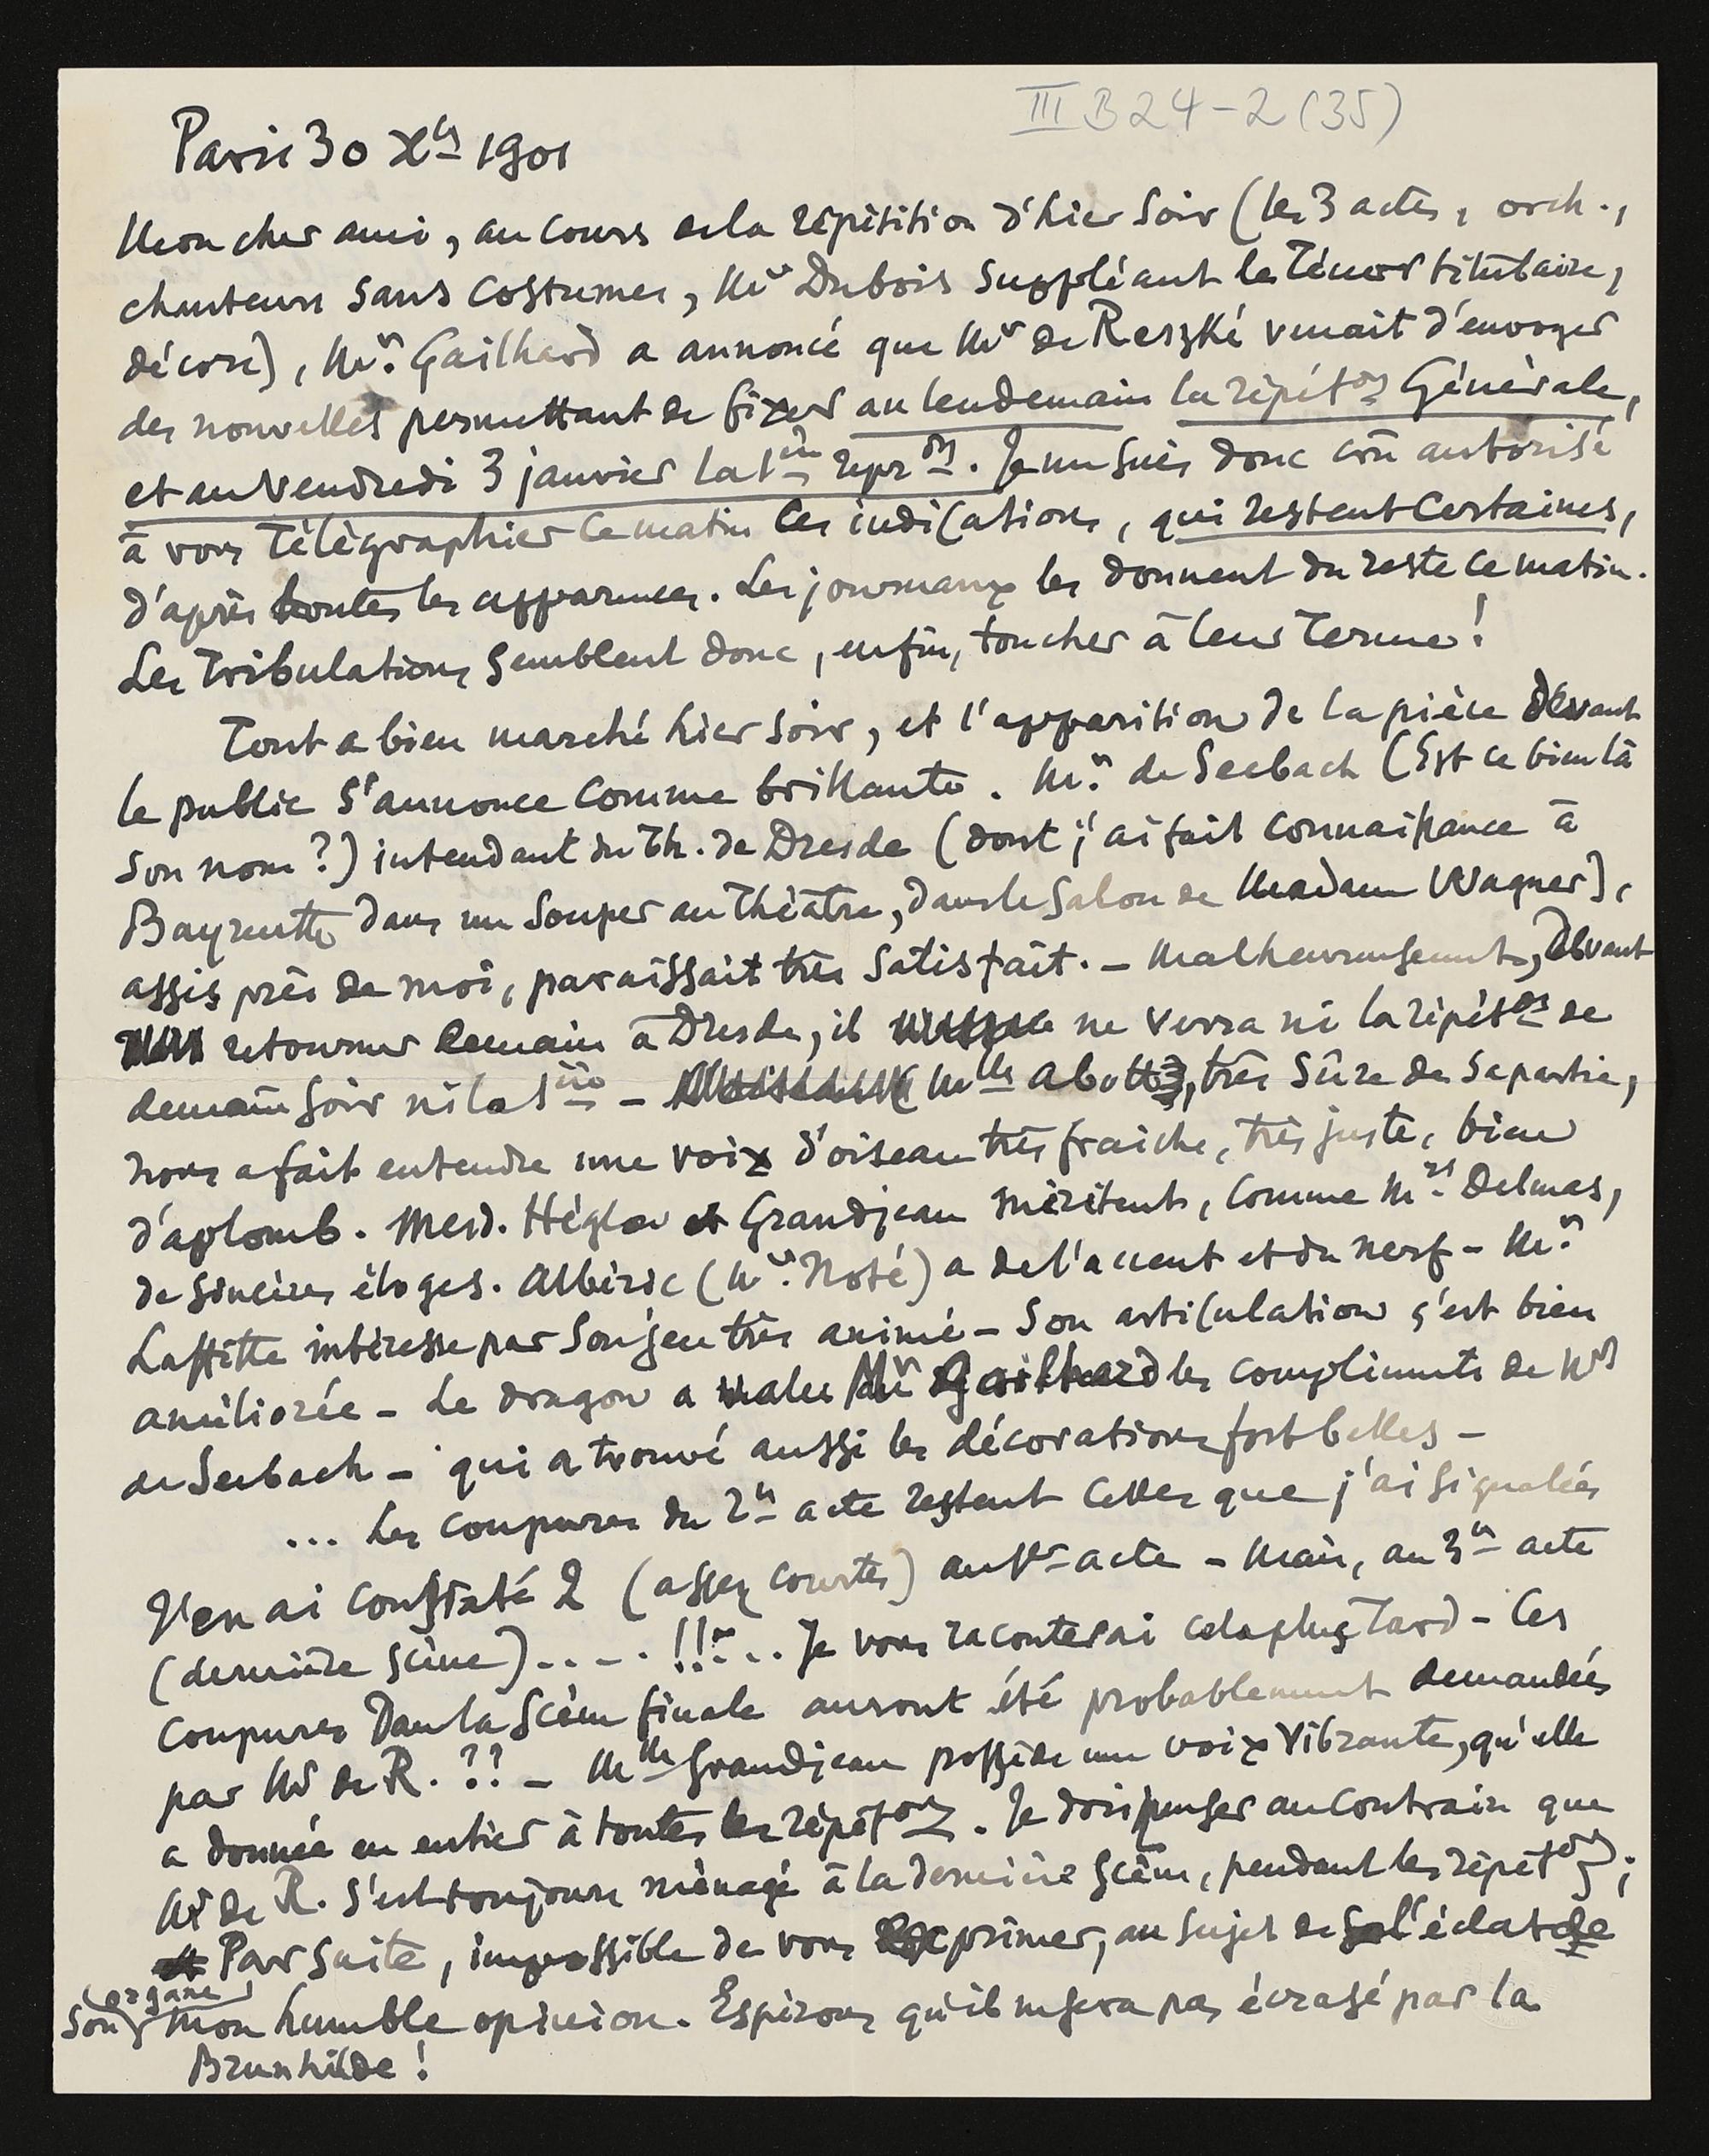 III B 24-2 (35)
Paris 30 Xbre 1901
Mon cher ami, au cours de la répétition d'hier soir (les 3 actes, orch.,
chanteurs sans costumes, Mr Dubois suppléant le Ténor titulaire,
décors), Mr. Gailhard a annoncé que Mr de Reszké venait d'envoyer
des nouvelles permettant de fixer au lendemain la répéton Générale,
et au Vendredi 3 janvier la 1ère repron. Je me suis donc cru autorisé
à vous Télégraphier ce matin ces indications, qui restent certaines,
d'après toutes les apparences. Les journaux les donnent du reste ce matin.
Les Tribulations semblent donc, enfin, toucher à leur Terme!
Tout a bien marché hier soir, et l'apparition de la pièce devant
le public s'annonce comme brillante. Mr. de Seebach (Est ce bien là
son nom?) intendant du Th. de Dresde (dont j'ai fait connaissance à
Bayreuth dans un souper au Théâtre, dans le salon de Madame Wagner),
assis près de moi, paraissait très satisfait. - Malheureusement, devant
retourner demain à Dresde, il ne verra ni la répéton de
demain soir ni la 1ère - Mlle Abott, très sûre de sa partie,
nous a fait entendre une voix d'oiseau très fraîche, très juste, bien
d'aplomb. Mesd. Héglon et Grandjean méritent, comme Mr. Delmas,
de sincères éloges. Albéric (Mr. Noté) a de l'accent et du nerf - Mr.
Laffitte intéresse par son jeu très animé - Son articulation s'est bien
améliorée - Le dragon a valu à Mr Gailhard les compliments de Mr
de Seebach - qui a trouvé aussi les décorations fort belles -
... Les coupures du 2e acte restent celles que j'ai signalées
J'en ai constaté 2 (assez courtes) au 1er acte - Mais, au 3e acte
(dernière scène)..... !!... Je vous raconterai cela plus Tard - Ces
coupures dans la scène finale auront été probablement demandées
par Mr de R. ?? - Mlle Grandjean possède une voix vibrante, qu'elle
a donnée en entier à toutes les répétons. Je dois penser au contraire que
Mr de R. s'est toujours ménagé à la dernière scène, pendant les répétons;
Par suite, impossible de vous exprimer, au sujet de l'éclat de
son organe mon humble opinion. Espérons qu'il ne sera pas écrasé par la
Brunhilde!